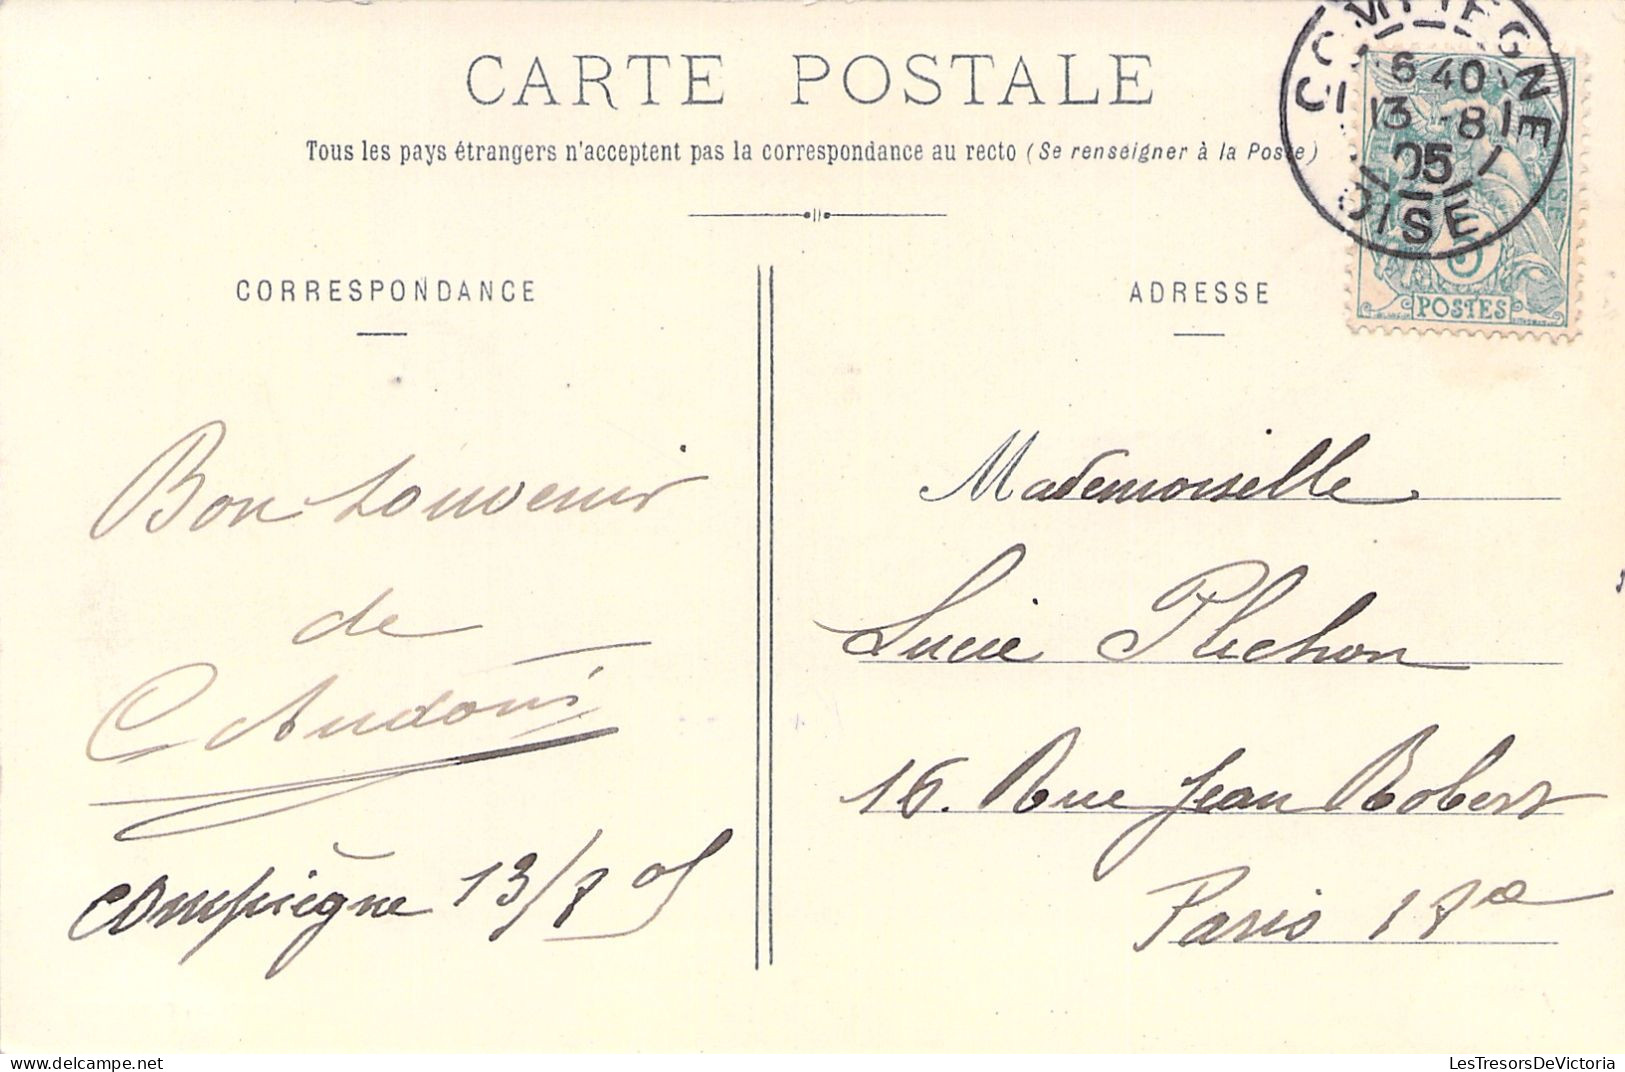 CARTE POSTALE
Tous les pays étrangers n'acceptent pas la correspondance au recto (Se renseigner à la Poste)
COMPIEGNE
6 40
13 -8
05
OISE
POSTES
CORRESPONDANCE
Bon souvenir
de
Compiègne 13/8 05
ADRESSE
Mademoiselle
Lucie Plichon
16. Rue Jean Robert
Paris 17e
LesTresorsDeVictoria